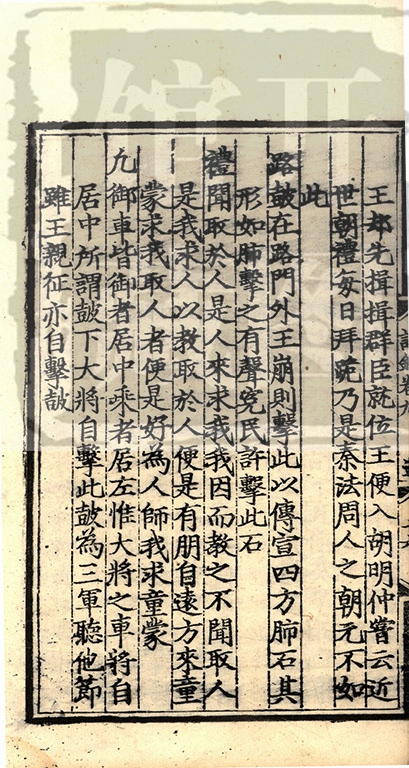 王却先揖揖群臣就位王便入胡明仲嘗云近
世朝禮每日拜跪乃是秦法周人之朝元不如
此
路鼓在路門外王崩則擊此以傳宣四方肺石其
形如肺擊之有聲冤民許擊此石
禮聞取於人是人來求我我因而教之不聞取人
是我求人以教取於人便是有朋自遠方來童
蒙求我取人者便是好為人師我求童蒙
凡御車皆御者居中乘者居左惟大將之車將自
居中所謂鼓下大將自擊此鼓為三軍聽他節
雖王親征亦自擊鼓